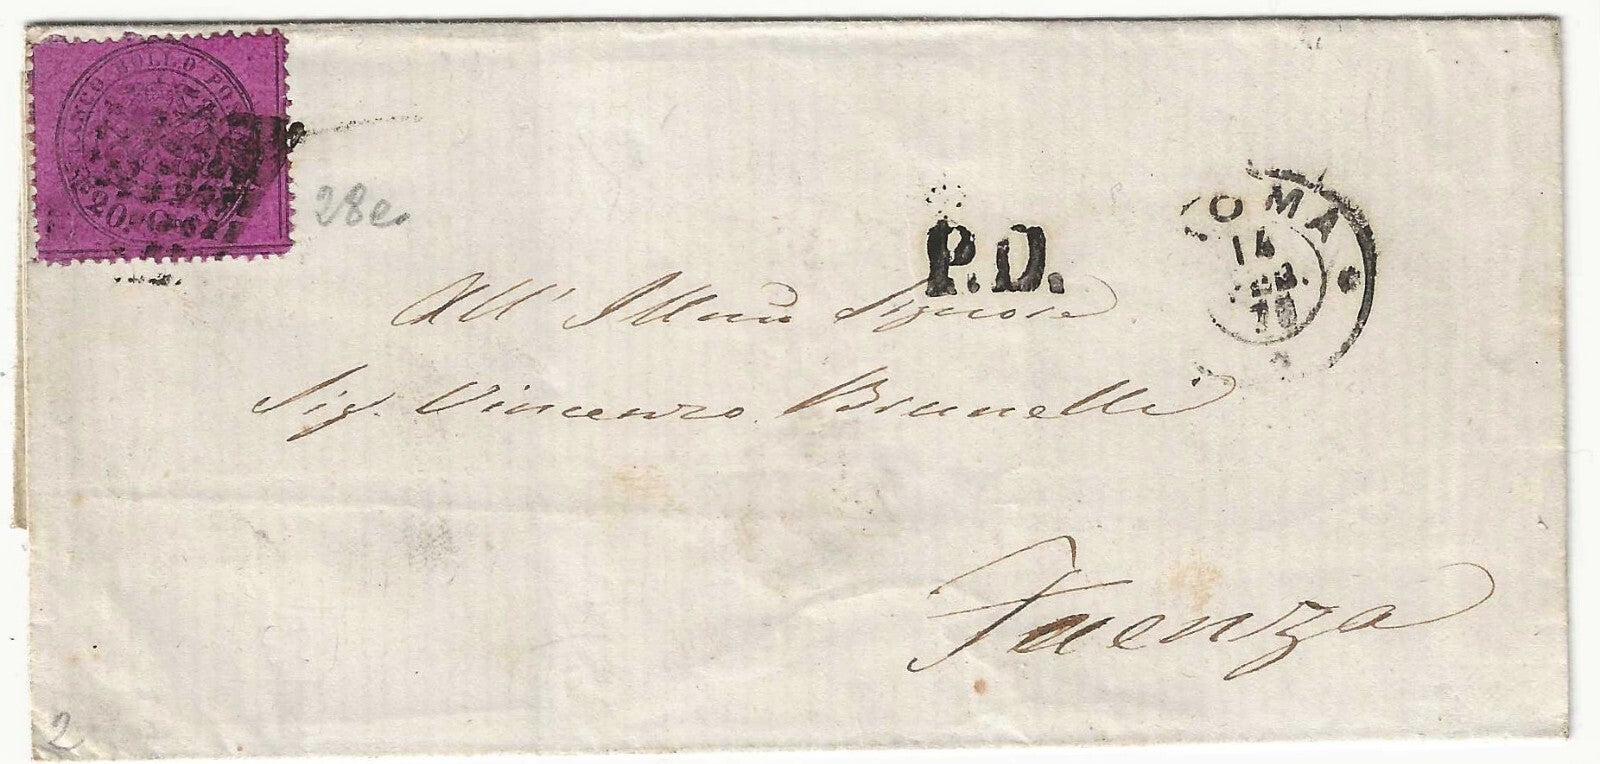 FRANCO BOLLO POSTALE
20 CENT
28e.
P.D.
ROMA
14
FEB.
70
All' Illmo Signore
Sig. Vincenzo Brunelli
Faenza
2